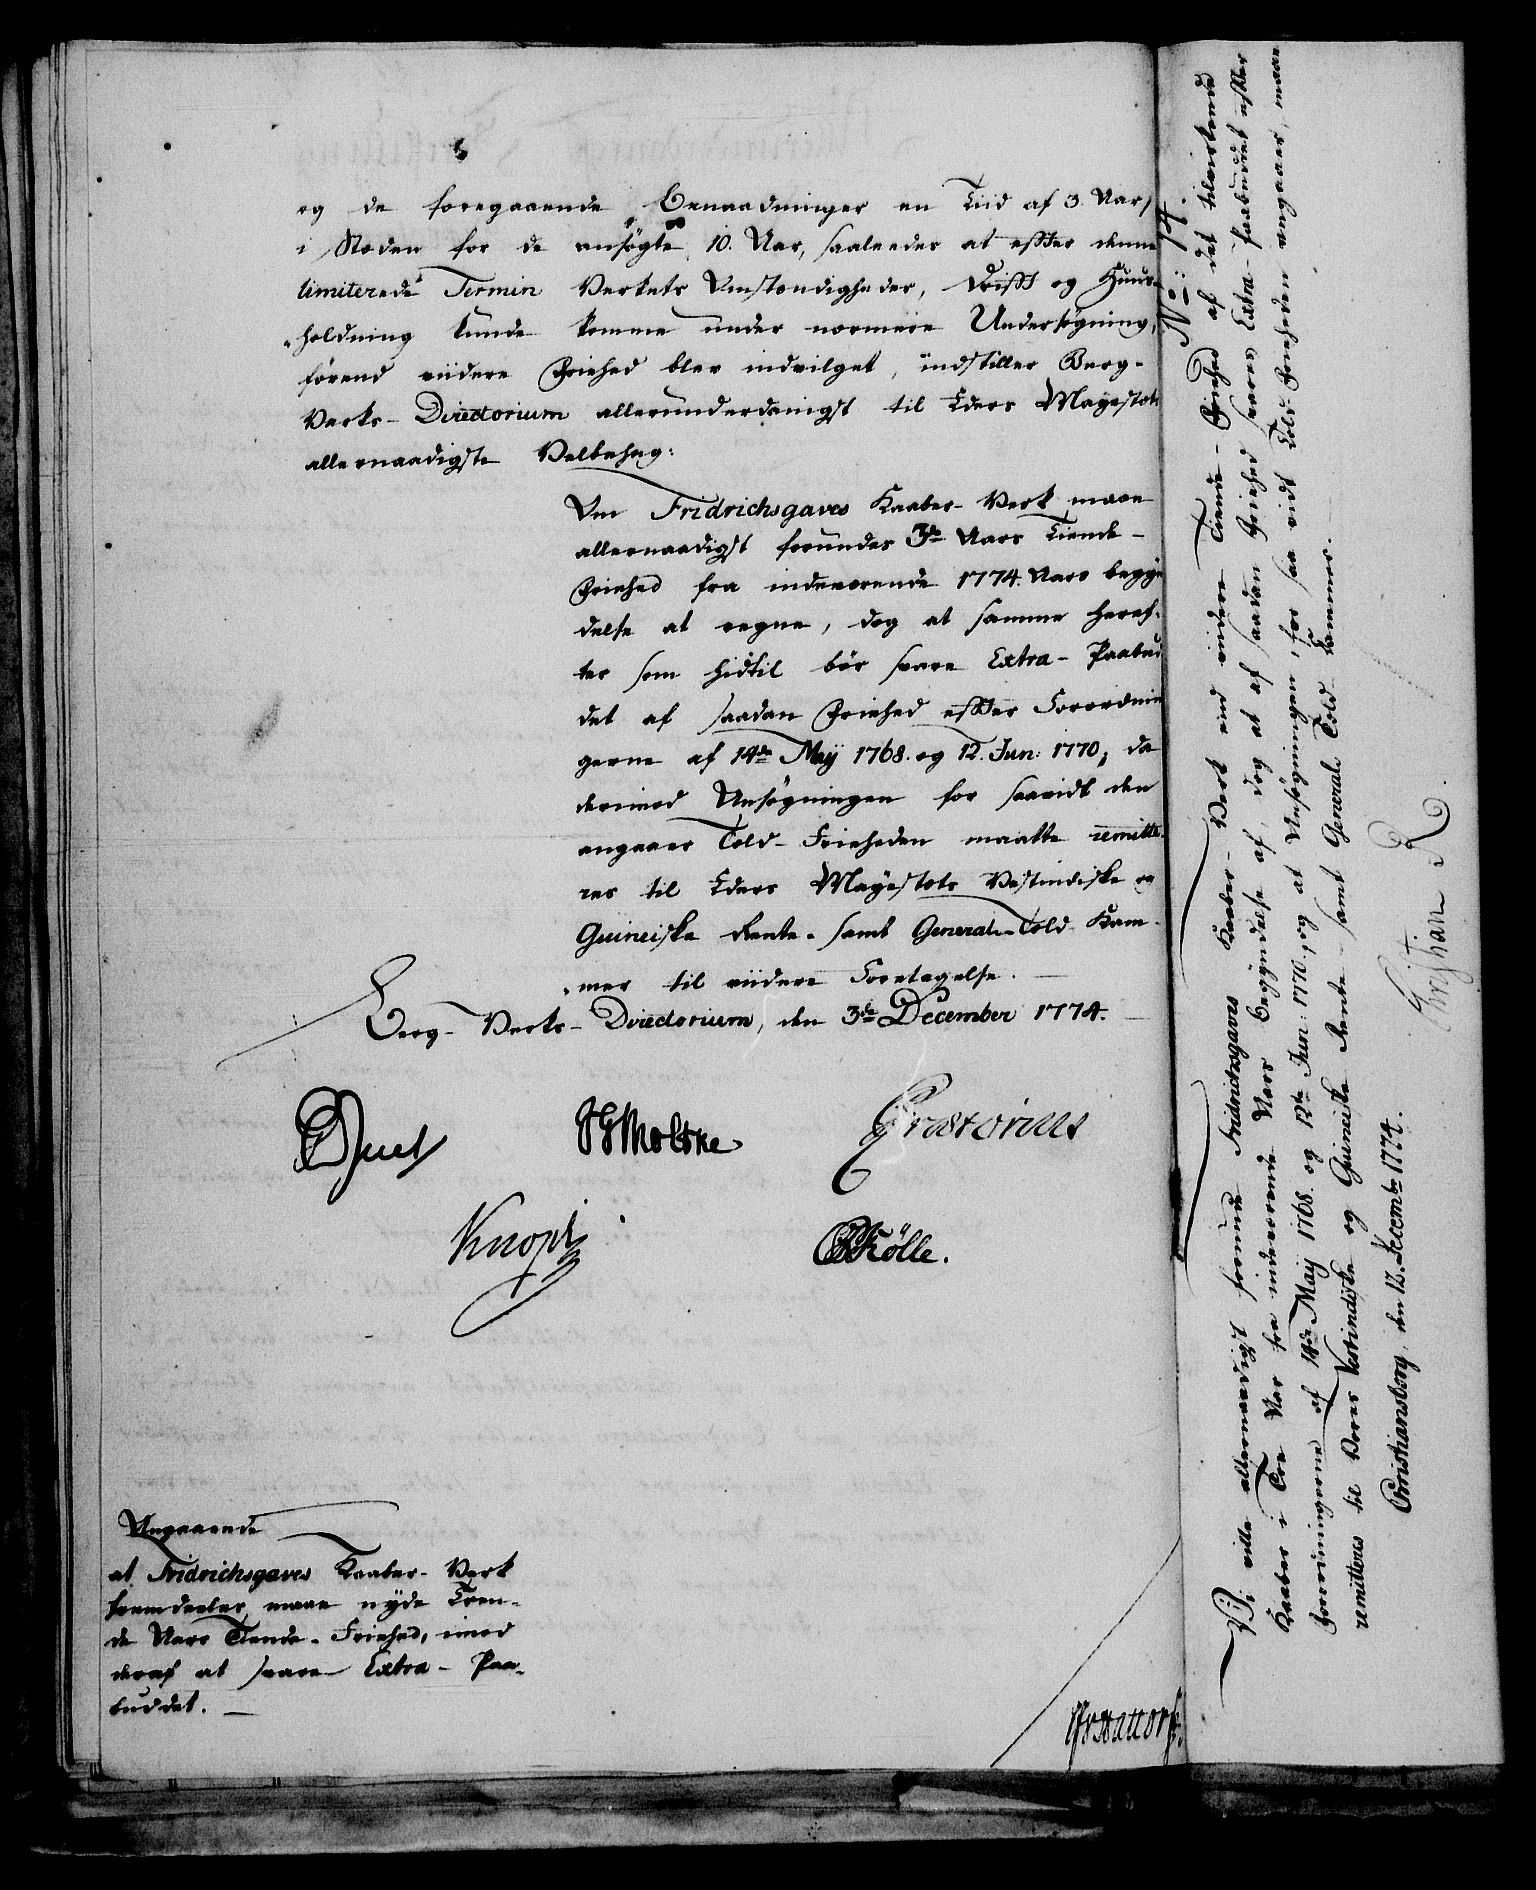 og de foregaaende Benaadninger en Tiid af 3 Aar,
i Steden for de ansøgte 10. Aar, saaleedes at efter denne
limiterede Termin Verkets Omstændigheder, Drifft og Huus-
holdning kunde komme under nærmere Undersøgning,
førend viidere Friehed blev indvilget, indstiller Berg-
Verks-Directorium allerunderdanigst til Eders Mayestets
allernaadigste Velbehag:
Om Fridrichsgaves Kaaber-Verk maae
allernaadigst forundes 3de Aars Tiende-
Friehed fra indeværende 1774. Aars begyn
delse at regne, dog at samme heref-
ter som hidtil bør svare Extra-Paabud
det af saadan Friehed effter Forordnin
gerne af 14de Maÿ 1768. og 12. Jun: 1770; da
derimod Ansøgningen for saavidt den
angaaer Told-Frieheden maatte remitte-
res til Eders Mayestets Vestindiske og
Guineiske Rente- samt General-Told-Kam-
mer til viidere Foretagelse.
Berg-Verks-Directorium, den 3de December 1774.
Juel
Moltke
Prætorius
Knoph
Kölle.
Angaaende
at Fridrichsgaves Kaaber-Verk
fremdeeles maae nyde Tven-
de Aars Tiende-Friehed, imod
deraf at svare Extra-Paa-
buddet.
No: 74.
Vi ville allernaadigst forunde Fridrichsgaves Kaaber-Verk end viidere Tiende-Friehed af det tilvirkende
Kaaber i Tre Aar fra indeværende Aars Begyndelse af, dog at af saadan Friehed svares Extra-Paabudet effter
Forordningerne af 14de Maÿ 1768. og 12te Jun: 1770., og at Ansøgningen, for saa vidt Told-Frieheden angaaer, maae
remitteres til Vores Vestindiske og Guineiske Rente- samt General-Told-Kammer.
Christiansborg, den 12. Decembr: 1774.
Christian R